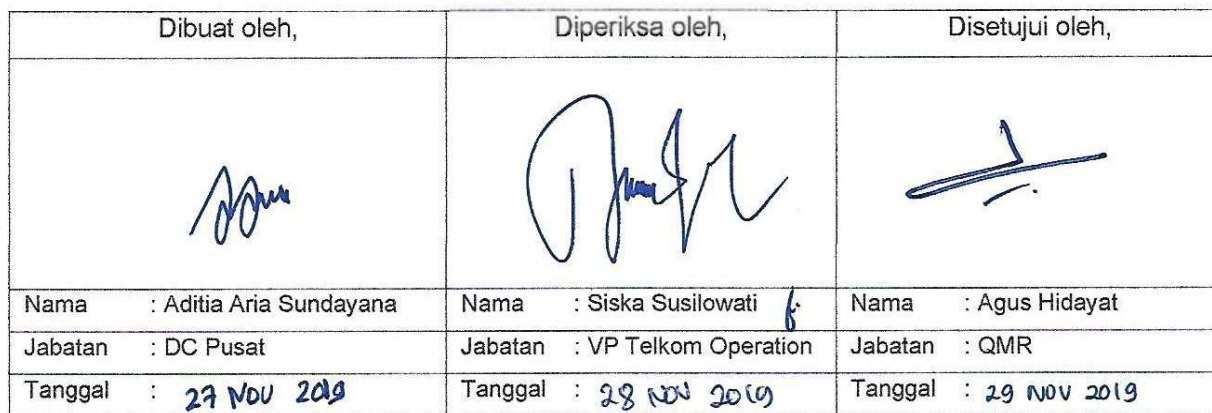 Dibuat oleh, Diperiksa oleh, Disetujui oleh,
Nama : Aditia Aria Sundayana Nama : Siska Susilowati Nama : Agus Hidayat
Jabatan : DC Pusat Jabatan : VP Telkom Operation Jabatan : QMR
Tanggal : 27 NOV 2019 Tanggal : 28 NOV 2019 Tanggal : 29 NOV 2019